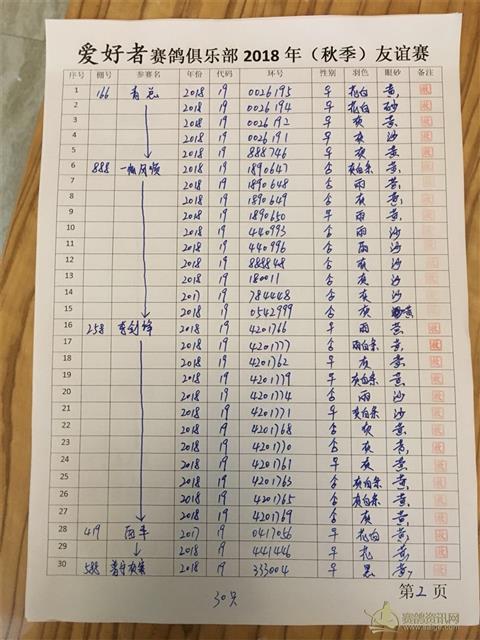 爱好者赛鸽俱乐部2018年（秋季）友谊赛
序号 棚号 参赛名 年份 代码 环号 性别 羽色 眼砂 备注
1 166 2018 19 0026195 花白 黄
2 2018 19 0026194 花白 砂
3 2018 19 0026192 灰 黄
4 2018 19 0026191 灰 沙
5 2018 19 888746 灰 黄
6 888 一帆风顺 2018 19 1890647 灰白条 黄
7 2018 19 1890648 雨 黄
8 2018 19 1890649 灰 黄
9 2018 19 1890650 雨 黄
10 2018 19 440993 雨 沙
11 2018 19 440996 雨 沙
12 2018 19 888848 灰 沙
13 2018 19 180011 灰 沙
14 2017 19 784448 灰 沙
15 2018 19 0542999 灰 黄
16 258 2018 19 4201766 雨 黄
17 2018 19 4201777 雨白条 黄
18 2018 19 4201762 灰 黄
19 2018 19 4201779 灰白条 黄
20 2018 19 4201774 雨 沙
21 2018 19 4201771 灰白条 沙
22 2018 19 4201768 灰 黄
23 2018 19 4201770 灰
24 2018 19 4201761 灰 黄
25 2018 19 4201763 灰白条 黄
26 2018 19 4201765 灰白条 黄
27 2018 19 4201769 灰 黄
28 419 2017 19 0417056 花白 黄
29 2018 19 441446 花 黄
30 588 2018 19 333004 黑 黄
30只
第2页
赛鸽资讯网